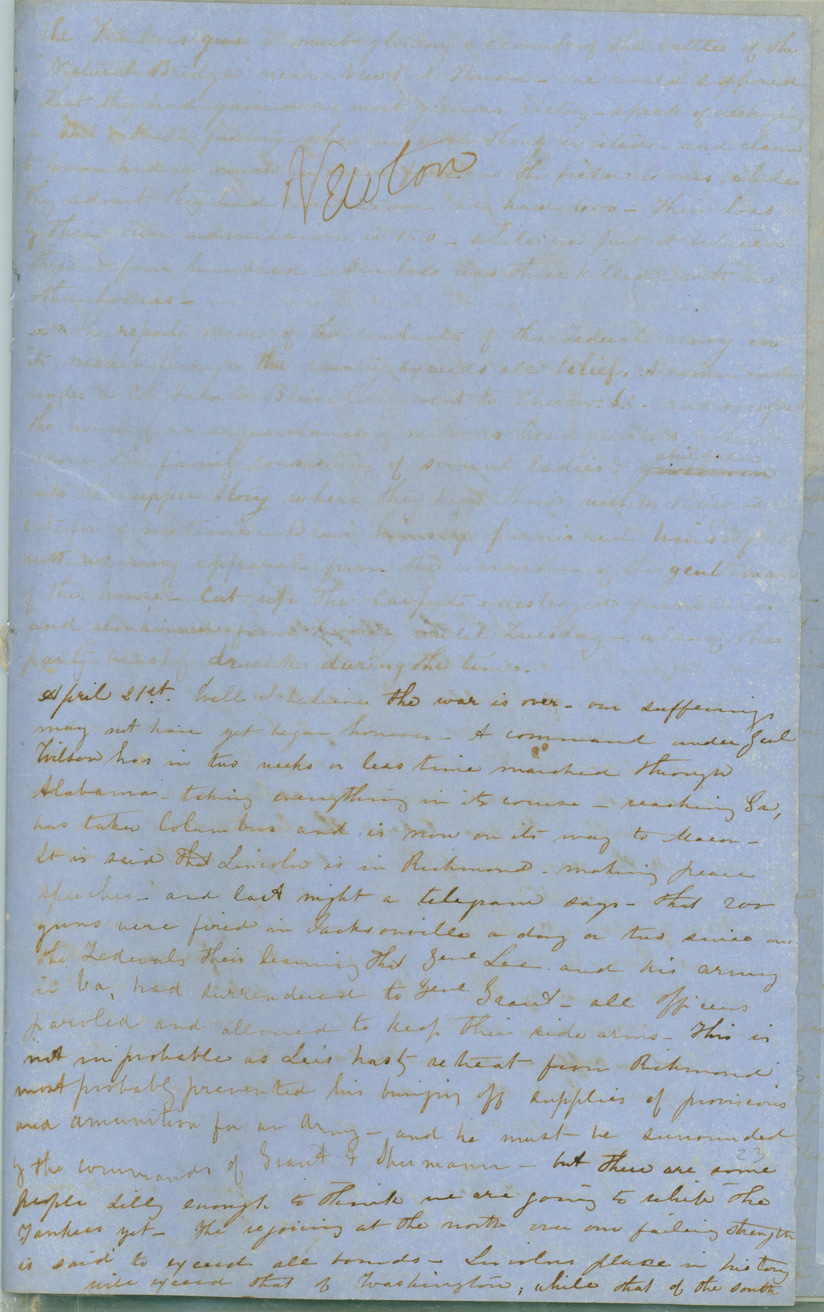 The Yankees give a most glowing account of the battles of the
Natural Bridge near Newport Florida - one would suppose
that they had gained a most glorious victory - speak of destroying
a when no such thing existed - and claim
a much in the field to ours, when
they admit they had - we had 600 - Their loss
by their own admission is 150 - while we put it between
three & four hundred - Our loss was three killed - with no
other losses -
Newton
The reports of the conduct of the Federal army in
its march through the country exceeds all belief. A command
under a Blair went to Cheraw S.C. and occupied
the house of an acquaintance of as head quarters
the family consisting of several ladies & children
into the upper story where they kept them without
sometimes - Blair himself furnished himself
with wearing apparel from the wardrobe of the gentleman
of the house - Cut up the carpets & destroyed furniture
and remained from until Tuesday - along the
party drunk during the time.
April 21st. Well I believe the war is over - our sufferings
may not have yet began however - A command under Genl
Wilson has in two weeks or less time marched through
Alabama - taking everything in its course - reaching Ga,
has taken Columbus and is now on its way to Macon -
It is said that Lincoln is in Richmond - making peace
speeches - and last night a telegram says - that 200
guns were fired in Jacksonville a day or two since on
the Federals their learning that Genl Lee and his army
in Va, had surrendered to Genl Grant - all officers
paroled and allowed to keep their side arms - This is
not improbable as Lee's hasty retreat from Richmond
most probably prevented his bringing off supplies of provisions
and amunition for an Army - and he must be surrounded
23
by the commands of Grant & Shermann - but there are some
people silly enough to think we are going to whip the
Yankees yet - The rejoicing at the north over our failing strength
is said to exceed all bounds - Lincolns place in history
will exceed that of Washington, while that of the south